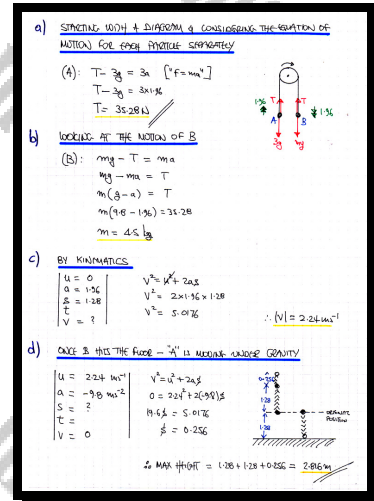 a) STARTING WITH A DIAGRAM & CONSIDERING THE EQUATION OF
MOTION FOR EACH PARTICLE SEPARATELY
(A): T - 3g = 3a ["F=ma"]
T - 3g = 3×1.96
T = 35.28 N
T T
1.96 1.96
A B
3g mg
b) LOOKING AT THE MOTION OF B
(B): mg - T = ma
mg - ma = T
m(g-a) = T
m(9.8 - 1.96) = 35.28
m = 4.5 kg
c) BY KINEMATICS
u = 0
a = 1.96
s = 1.28
t
v = ?
v² = u² + 2as
v² = 2×1.96×1.28
v² = 5.0176
∴ |v| = 2.24 ms⁻¹
d) ONCE B HITS THE FLOOR - "A" IS MOVING UNDER GRAVITY
u = 2.24 ms⁻¹
a = -9.8 ms⁻²
s = ?
t =
v = 0
v² = u² + 2as
0 = 2.24² + 2(-9.8)s
19.6s = 5.0176
s = 0.256
0.256
1.28
1.28
ORIGINAL
POSITION
∴ MAX HEIGHT = 1.28 + 1.28 + 0.256 = 2.816 m